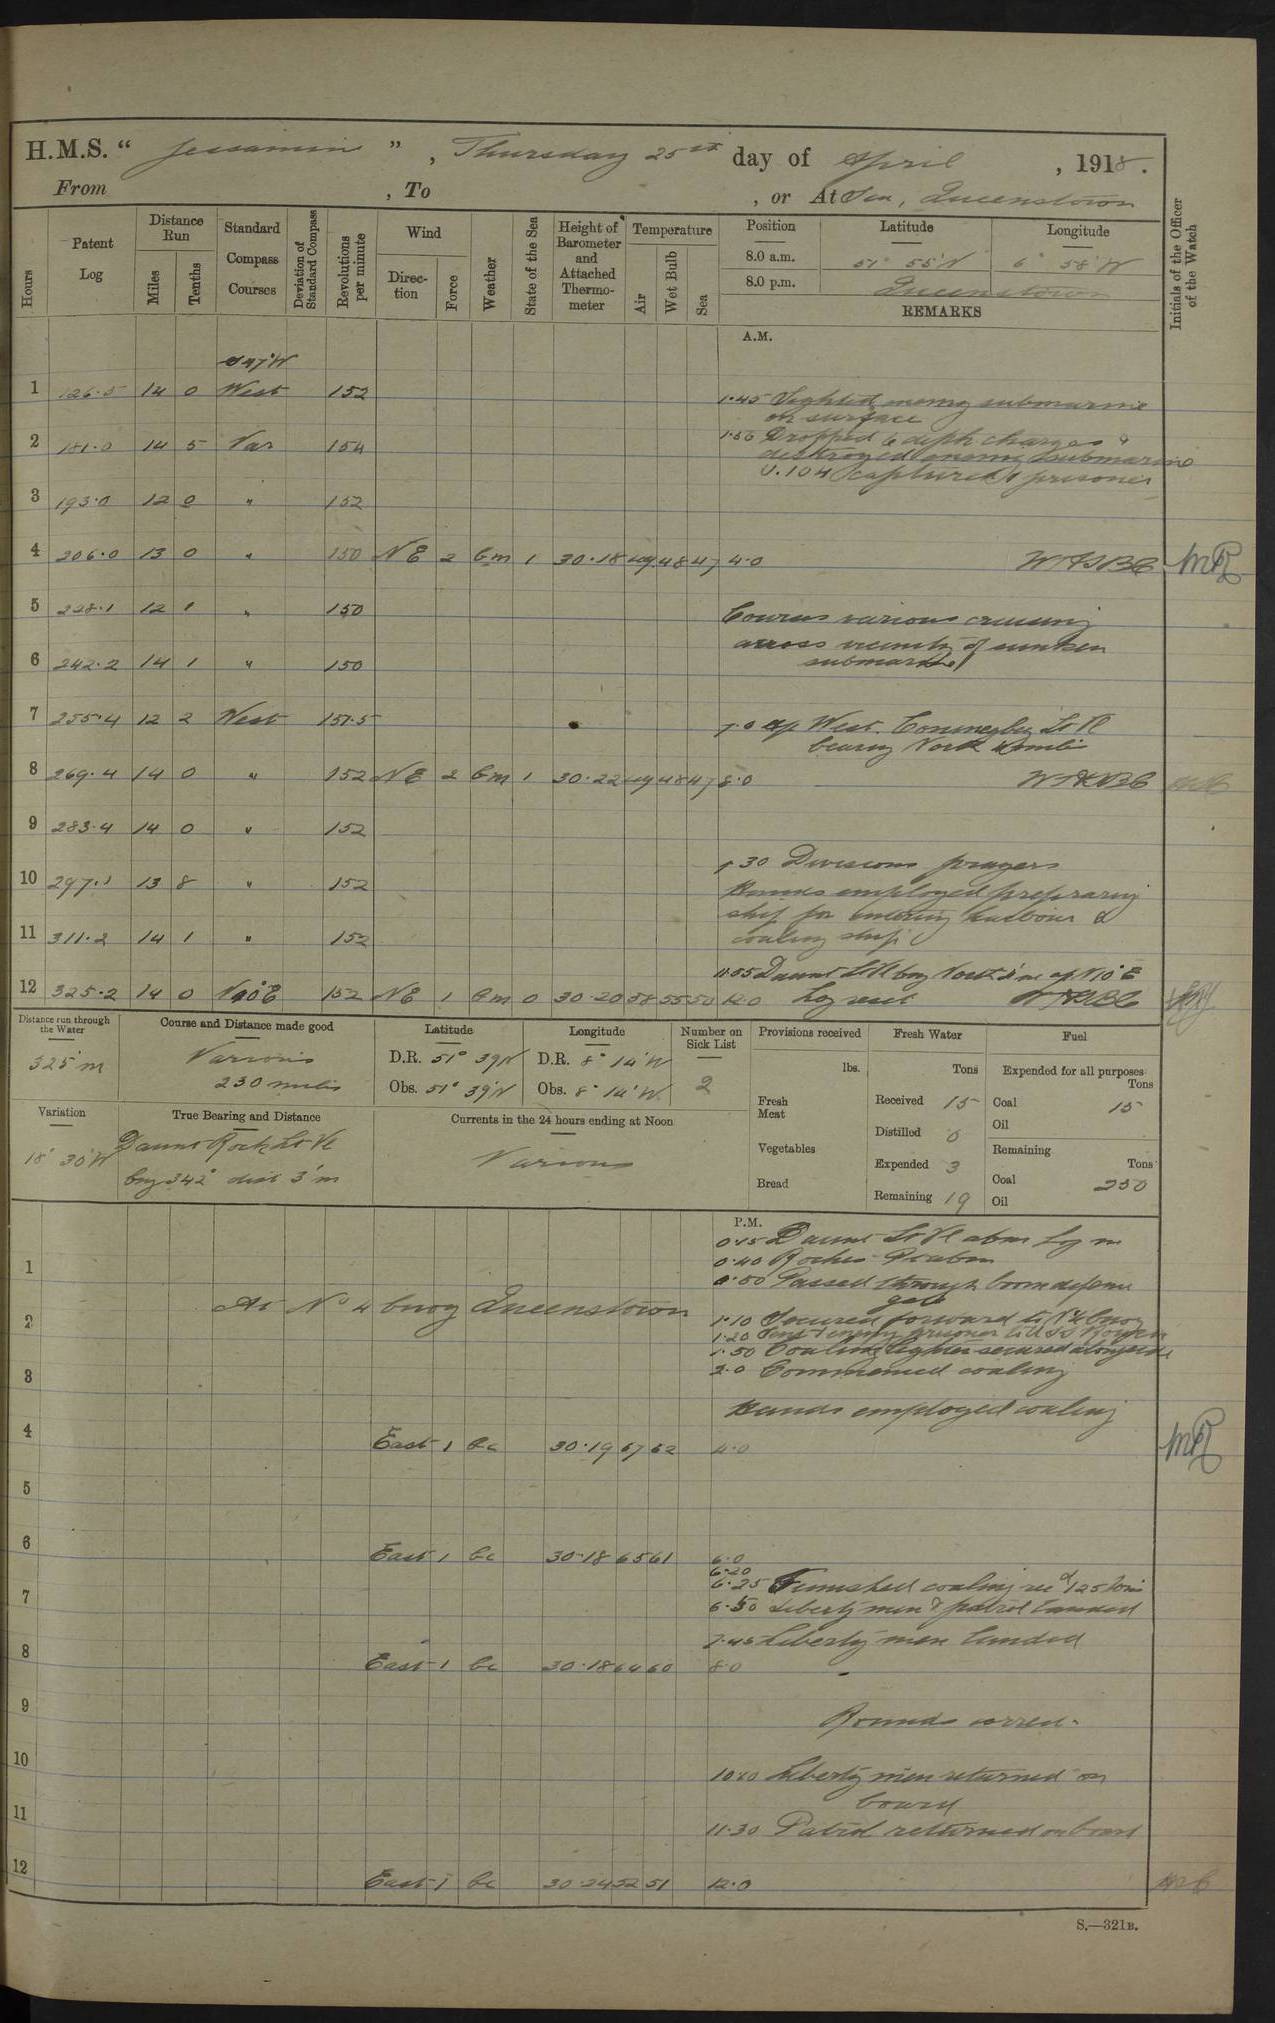 H.M.S. "Jessamine", Thursday 25th day of April, 1918.
From , To , or At Sea, Queenstown
Hours
Patent Log
Distance Run
Miles
Tenths
Standard Compass Courses
Deviation of Standard Compass
Revolutions per minute
Wind
Direction
Force
Weather
State of the Sea
Height of Barometer and Attached Thermometer
Temperature
Air
Wet Bulb
Sea
Position Latitude Longitude
8.0 a.m. 51° 55'N 6° 58'W
8.0 p.m. Queenstown
REMARKS
Initials of the Officer of the Watch
A.M.
1 14 0 West 152
1.45 Sighted enemy submarine
on surface
2 181.0 14 5 Var 154
1.50 Dropped 6 depth charges &
destroyed enemy submarine
U.104 captured 1 prisoner
3 193.0 12 0 " 152
4 206.0 13 0 " 150 NE 2 bm 1 30.18 49 48 47 4.0
5 228.1 12 1 " 150
Courses various cruising
across vicinity of sunken
submarine
6 242.2 14 1 " 150
7 255.4 12 2 West 151.5
7.0 a/c West. Coningbeg Lt Vl
bearing North miles
8 269.4 14 0 " 152 NE 2 bm 1 30.22 49 48 47 8.0
9 283.4 14 0 " 152
9 30 Divisions prayers
10 297.1 13 8 " 152
Hands employed preparing
ship for entering harbour &
coaling ship
11 311.2 14 1 " 152
11.55 Daunt Lt Vl brg North 3'm a/c N10°E
12 325.2 14 0 N10°E 152 NE 1 bm 0 30.20 58 55 50 12.0 Log reset
Distance run through the Water
325'm
Course and Distance made good
Various
230 miles
Latitude
D.R. 51° 39'N
Obs. 51° 39'N
Longitude
D.R. 8° 14'W
Obs. 8° 14'W
Number on Sick List
2
Provisions received
lbs.
Fresh Meat
Vegetables
Bread
Fresh Water
Tons
Received 15
Distilled 0
Expended 3
Remaining 19
Fuel
Expended for all purposes
Tons
Coal 15
Oil
Remaining
Tons
Coal 250
Oil
Variation
18° 30'W
True Bearing and Distance
Daunt Rock Lt Vl
brg 342° dist 3'm
Currents in the 24 hours ending at Noon
Various
P.M.
0.15 Daunt Lt Vl abm Log in
0.40 Roches Pt abm
1
0.50 Passed through boom defence
gate
At No 4 buoy Queenstown
2
1.10 Secured forward to No 4 buoy
1.20 Sent 1 enemy prisoner to
1.50 Coaling lighter secured alongside
3
2.0 Commenced coaling
Hands employed coaling
4 East 1 bc 30.19 67 62 4.0
5
6 East 1 bc 30.18 65 61 6.0
6.20
6.25 Finished coaling rec'd 125 tons
7
6.30 Liberty men & patrol landed
7.45 Liberty men landed
8 East 1 bc 30.18 64 60 8.0
9
Rounds correct.
10
Liberty men returned on
board
11
11.30 Patrol returned on board
12 East 1 bc 30.24 52 51 12.0
S.—321B.